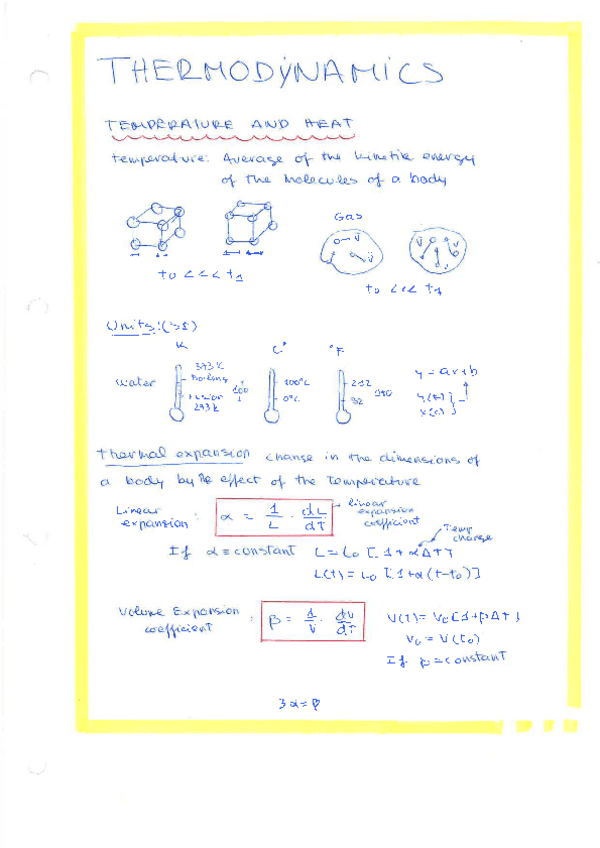 THERMODYNAMICS
TEMPERATURE AND HEAT
temperature: Average of the kinetik energy
of the molecules of a body
Gas
t₀ <<< t₁
t₀ <<< t₁
Units:
K C° °F
water
373K
Boiling
100
Fusion
273K
100°C
0°C
212
32
180
y = ax+b
Thermal expansion change in the dimensions of
a body by the effect of the temperature
Linear
expansion: α = 1/L · dL/dT
linear
expansion
coefficient
If α ≡ constant L = L₀ [1+αΔT]
Temp
change
L(t) = L₀ [1+α(t-t₀)]
Volume Expansion
coefficient : β = 1/V · dV/dT
V(T) = V₀[1+βΔT]
V₀ = V(t₀)
If β = constant
3α = β